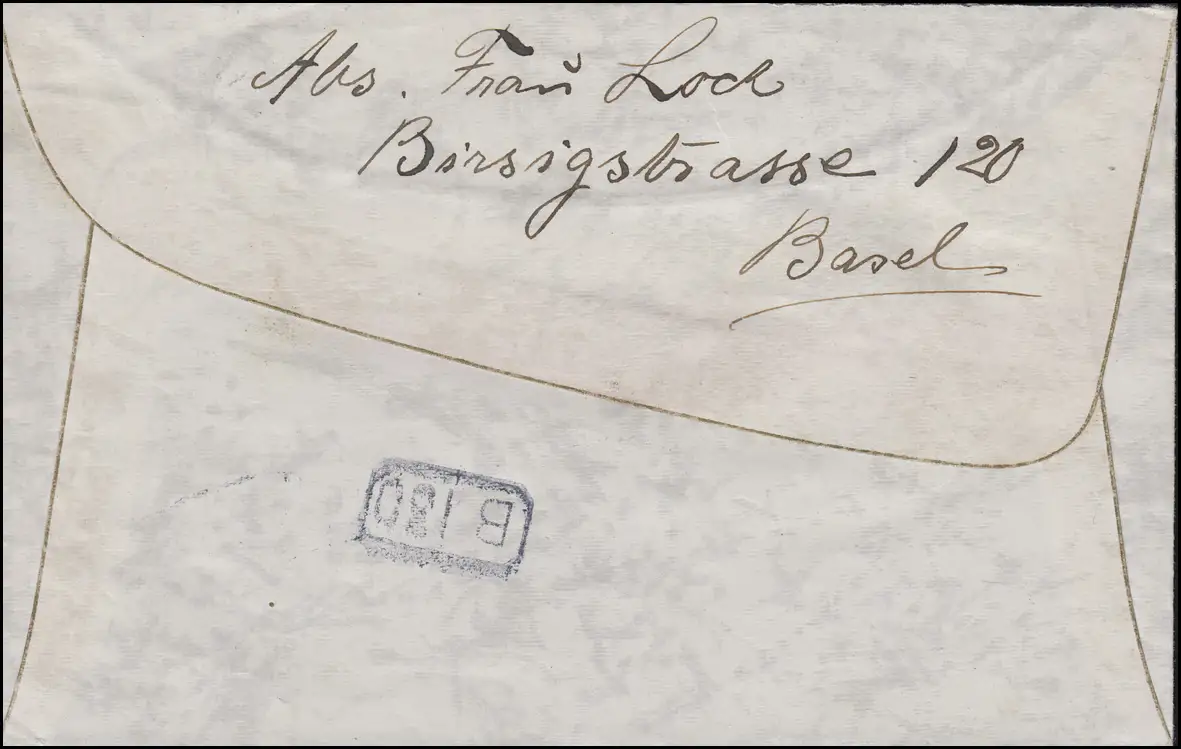 Abs. Frau Lock
Birsigstrasse 120
Basel